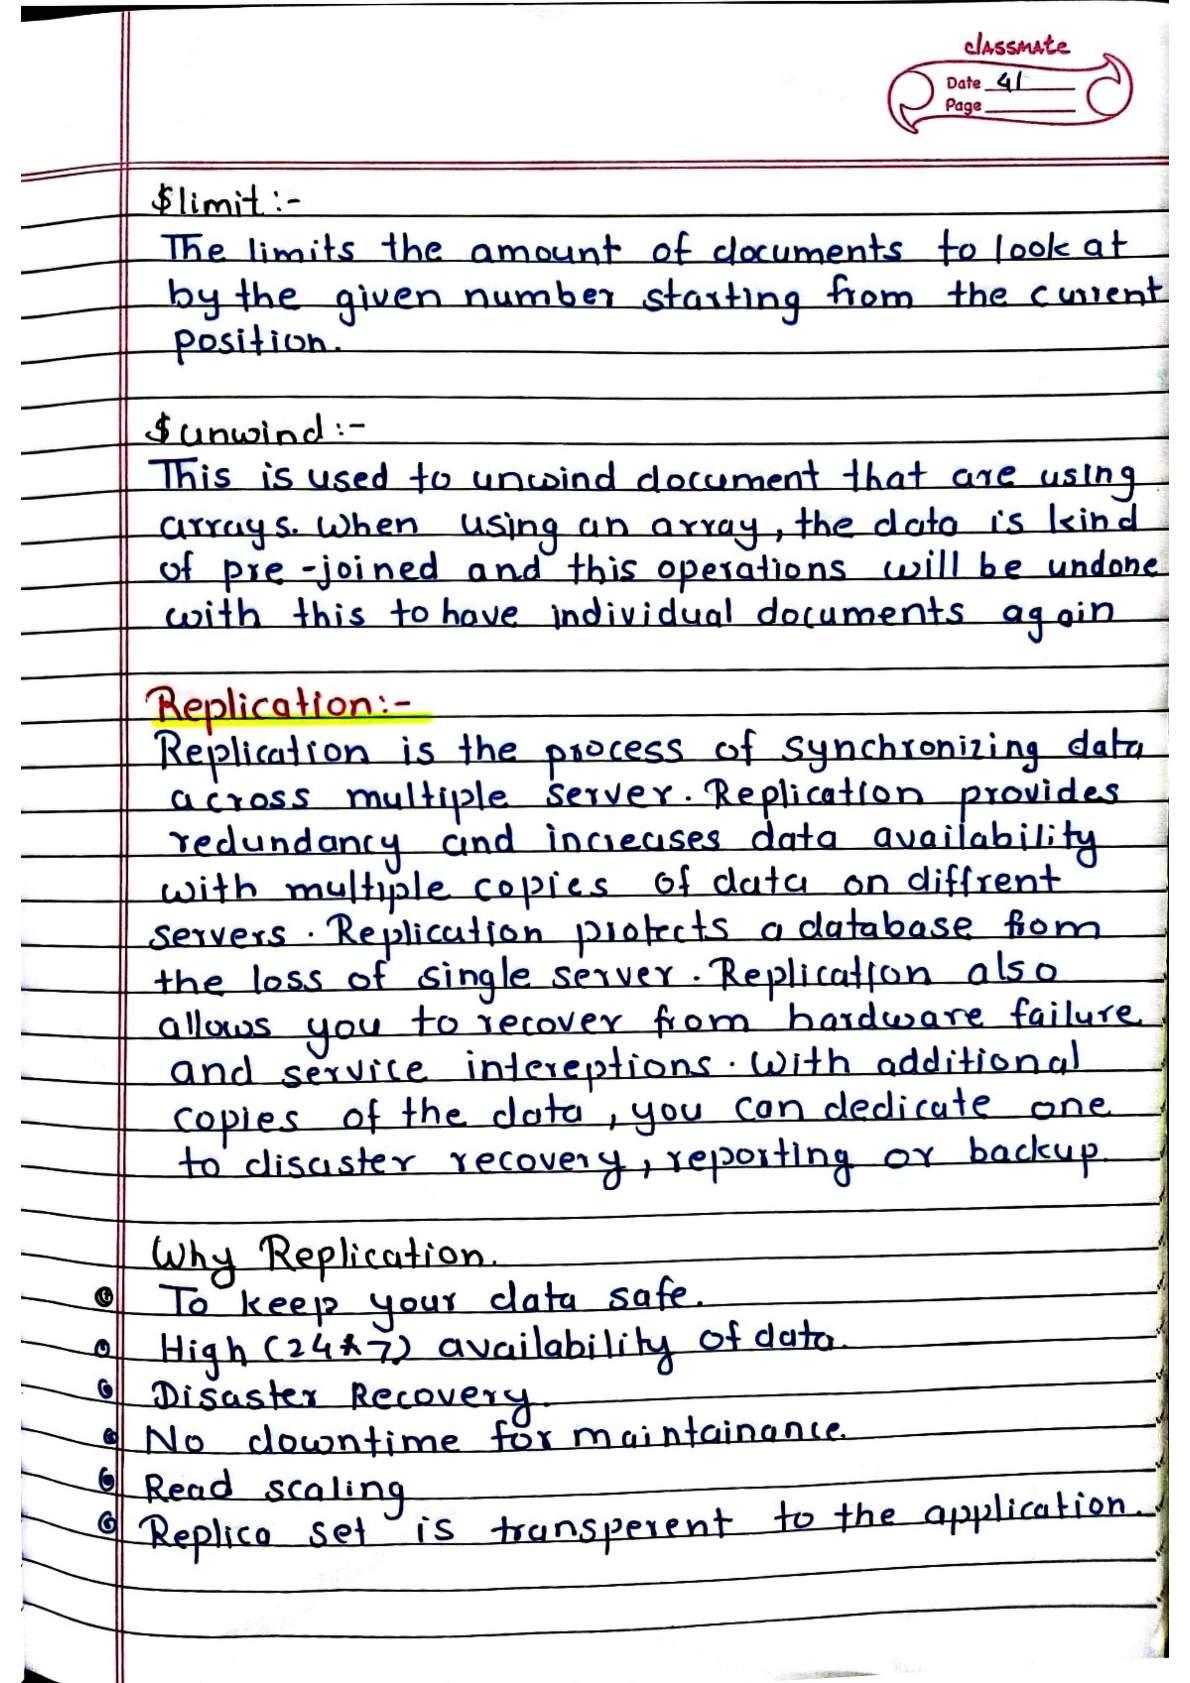 classmate
Date 41
Page
$limit :-
The limits the amount of documents to look at
by the given number starting from the current
position.
$unwind :-
This is used to unwind document that are using
arrays. When using an array, the data is kind
of pre-joined and this operations will be undone
with this to have individual documents again
Replication:-
Replication is the process of synchronizing data
across multiple server. Replication provides
redundancy and increases data availability
with multiple copies of data on diffrent
servers. Replication protects a database from
the loss of single server. Replication also
allows you to recover from hardware failure
and service intereptions. With additional
copies of the data, you can dedicate one
to disaster recovery, reporting or backup.
Why Replication.
To keep your data safe.
High (24*7) availability of data.
Disaster Recovery.
No downtime for maintainance.
Read scaling
Replica set is transperent to the application.